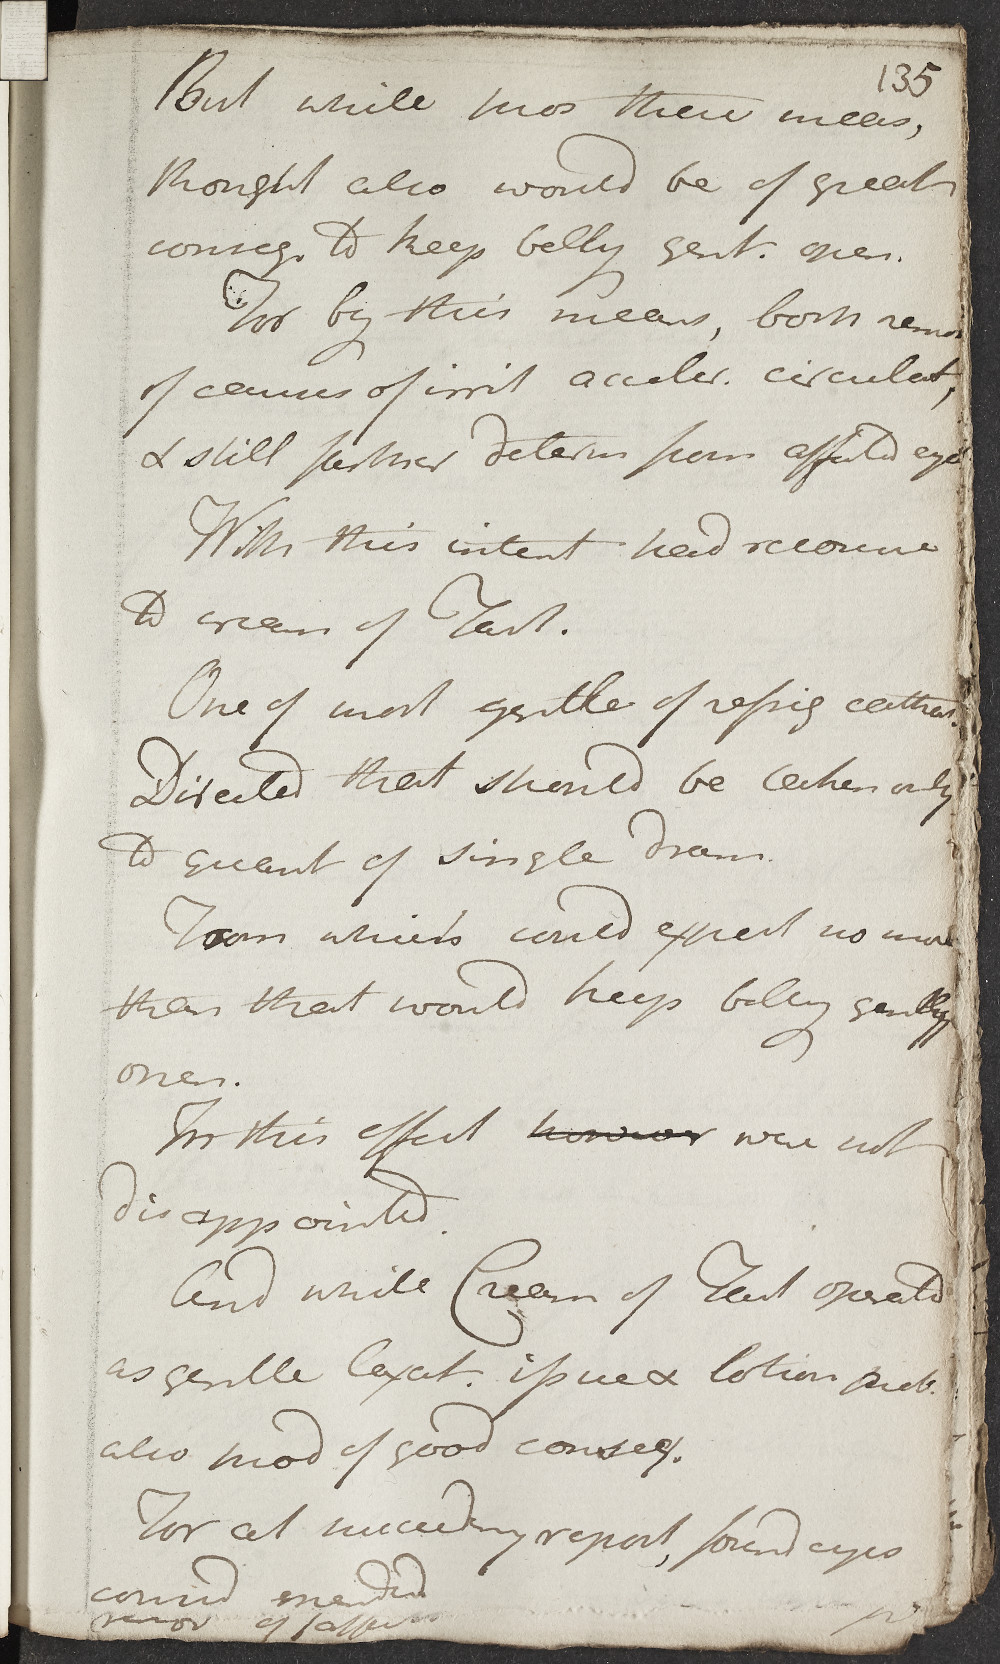 135
But while pros these meas,
thought also would be of great
conseq. to keep belly gent. open.
For by this means, both remov
of causes of irrit acceler. circulat,
& still farther determ from affected eye
With this intent had recourse
to cream of Tart.
One of most gentle of refrig cathart.
Directed that should be taken only
to quant of single dram.
From which could expect no more
than that would keep belly gently
open.
In this effect however were not
disappointed.
And while Cream of Tart operated
as gentle laxat. issue & lotion prob.
also prod of good conseq.
For at succeeding report, found eyes
consid mended
remov of